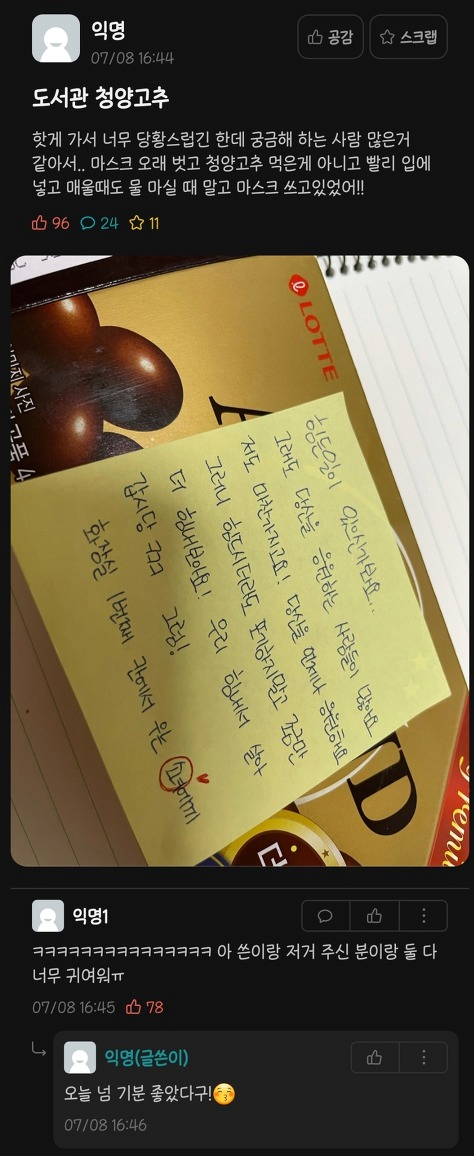 익명
07/08 16:44
공감
스크랩
도서관 청양고추
핫게 가서 너무 당황스럽긴 한데 궁금해 하는 사람 많은거
같아서.. 마스크 오래 벗고 청양고추 먹은게 아니고 빨리 입에
넣고 매울때도 물 마실 때 말고 마스크 쓰고있었어!!
96 24 11
LOTTE
힘든일이 있으신가봐요..
그래도 당신을 응원하는 사람들이 많아요
저도 마찬가지고요! 당신을 언제나 응원해요
그러니 힘드시더라도 포기하지말고 조금만
더 힘내봐요! 우리 힘내서 살아
갑시당 구럼 그럼!
화장실 1번째 칸에서 우는
익명1
ㅋㅋㅋㅋㅋㅋㅋㅋㅋㅋㅋㅋㅋㅋㅋ 아 쓴이랑 저거 주신 분이랑 둘 다
너무 귀여워ㅠ
07/08 16:45 78
익명(글쓴이)
오늘 넘 기분 좋았다구!😚
07/08 16:46